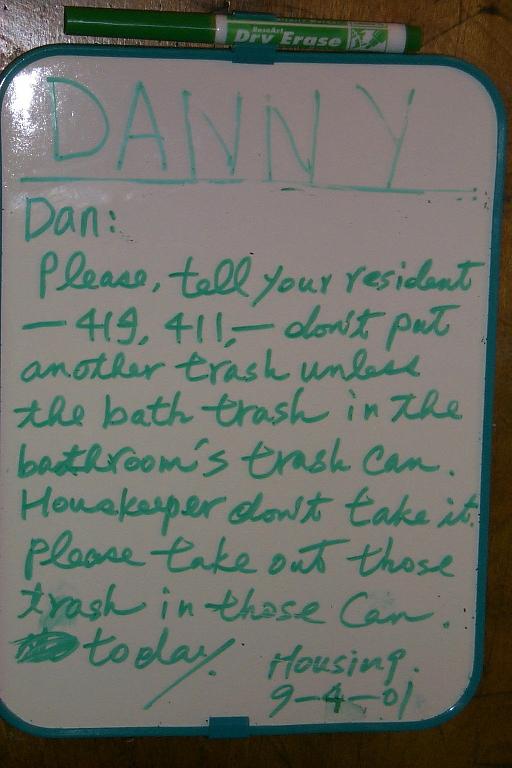 RoseArt
Dry Erase
DANNY
Dan:
Please, tell your resident
— 419, 411, — don't put
another trash unless
the bath trash in the
bathroom's trash can.
Housekeeper don't take it.
Please take out those
trash in those can.
today.
Housing.
9-4-01